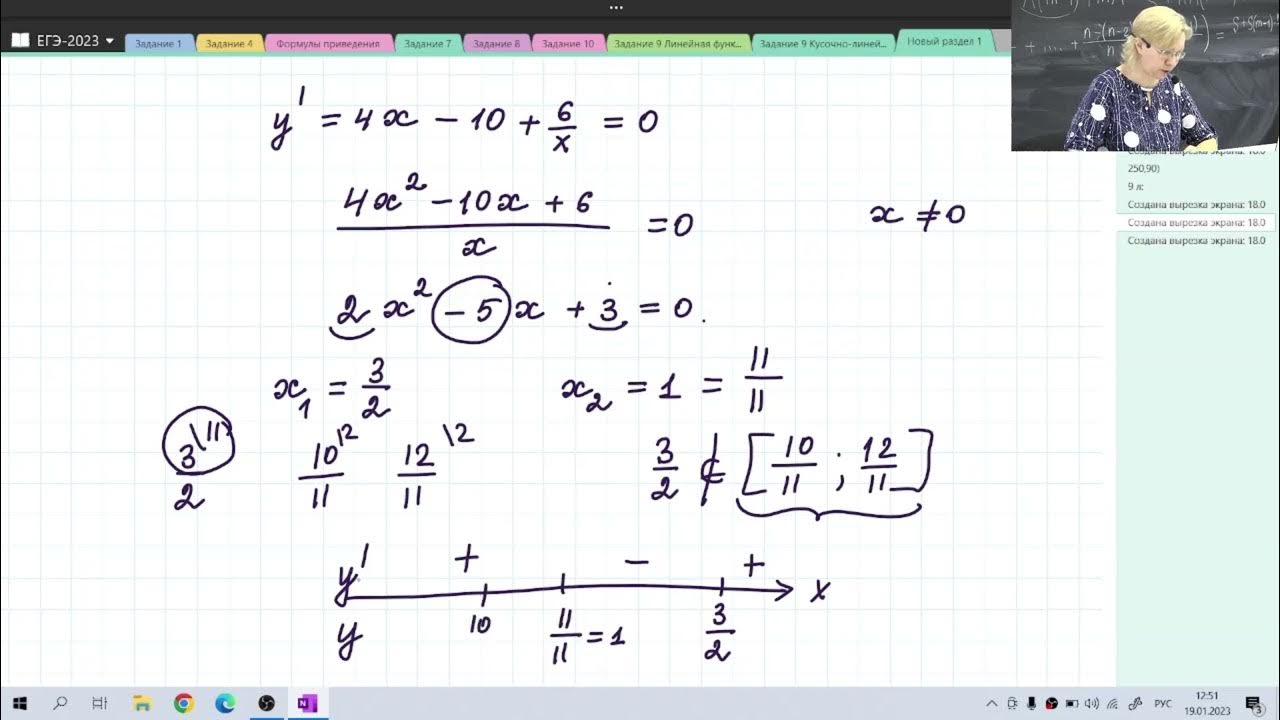 ...
ЕГЭ-2023
Задание 1
Задание 4
Формулы приведения
Задание 7
Задание 8
Задание 10
Задание 9 Линейная функ...
Задание 9 Кусочно-линей...
Новый раздел 1
y' = 4x − 10 + 6/x = 0
(4x² − 10x + 6)/x = 0
x ≠ 0
2x² − 5x + 3 = 0.
x₁ = 3/2
x₂ = 1 = 11/11
3\11/2
10\2/11
12\2/11
3/2 ∉ [10/11 ; 12/11]
y' + − +
x
y
10
11/11 = 1
3/2
250,90)
9 л:
Создана вырезка экрана: 18.0
Создана вырезка экрана: 18.0
Создана вырезка экрана: 18.0
РУС
12:51
19.01.2023
3